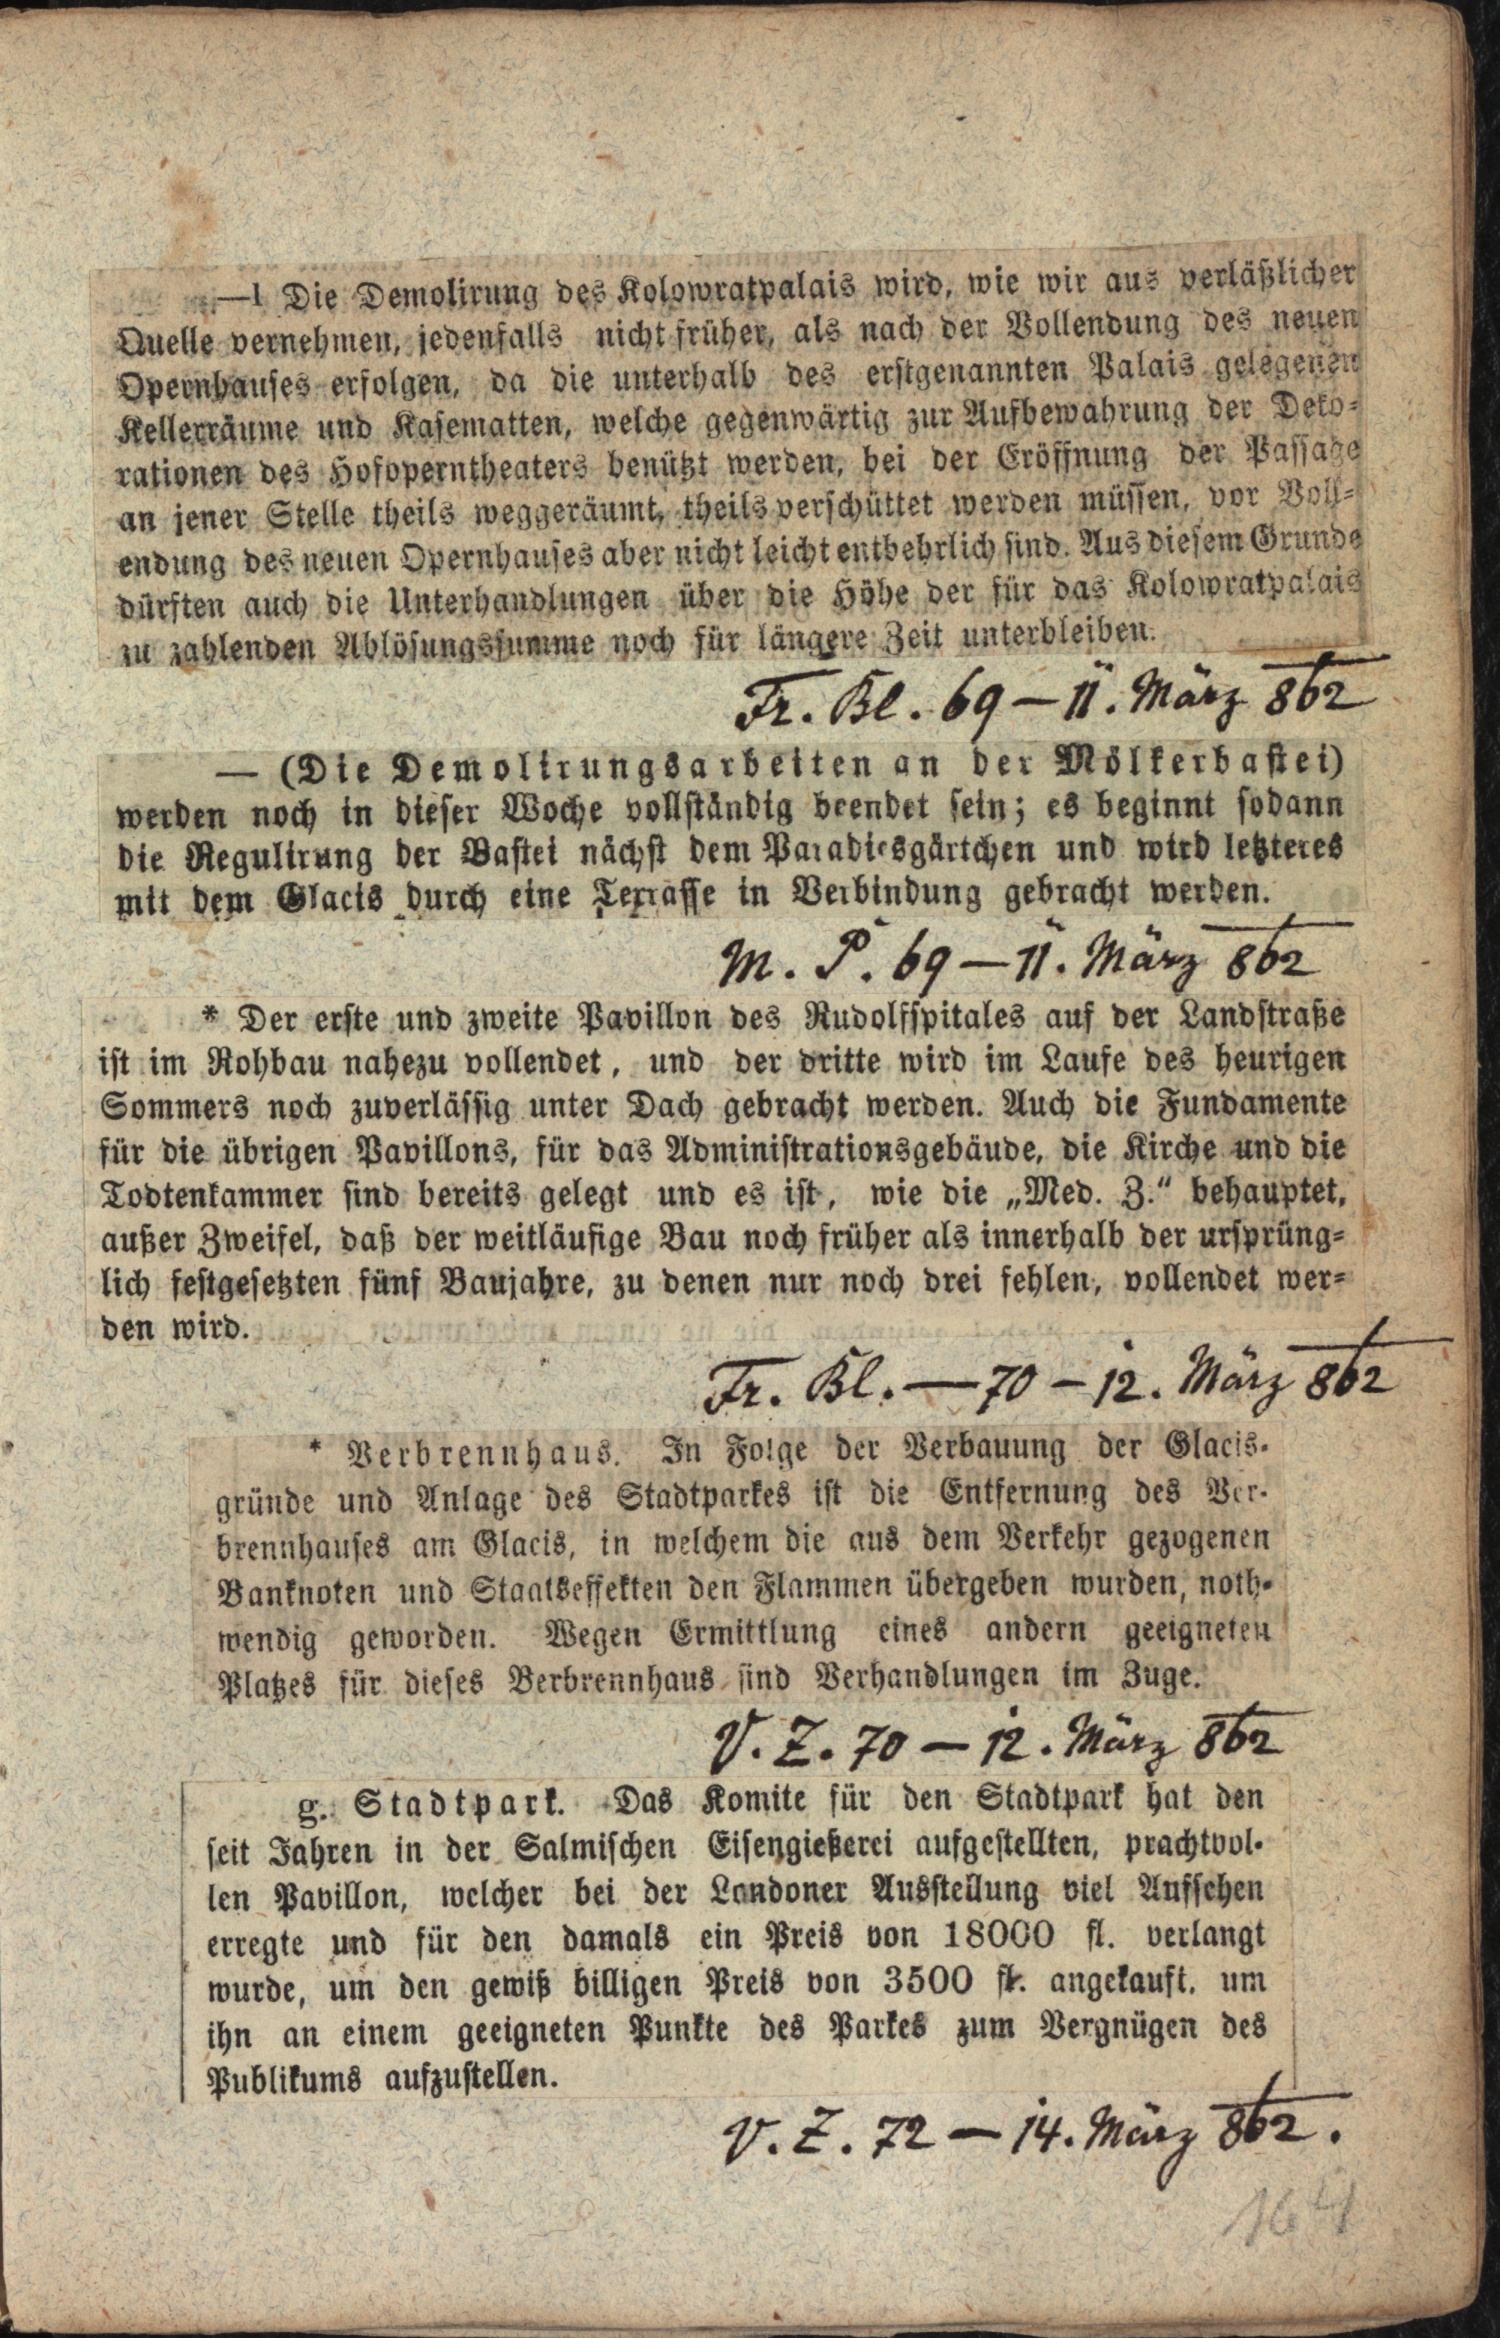 —1 Die Demolirung des Kolowratpalais wird, wie wir aus verläßlicher
Quelle vernehmen, jedenfalls nicht früher, als nach der Vollendung des neuen
Opernhauses erfolgen, da die unterhalb des erstgenannten Palais gelegenen
Kellerräume und Kasematten, welche gegenwärtig zur Aufbewahrung der Deko-
rationen des Hofoperntheaters benützt werden, bei der Eröffnung der Passage
an jener Stelle theils weggeräumt, theils verschüttet werden müssen, vor Voll-
endung des neuen Opernhauses aber nicht leicht entbehrlich sind. Aus diesem Grunde
dürften auch die Unterhandlungen über die Höhe der für das Kolowratpalais
zu zahlenden Ablösungssumme noch für längere Zeit unterbleiben.
Fr. Bl. 69 — 11. März 862
— (Die Demolirungsarbeiten an der Mölkerbastei)
werden noch in dieser Woche vollständig beendet sein; es beginnt sodann
die Regulirung der Bastei nächst dem Paradiesgärtchen und wird letzteres
mit dem Glacis durch eine Terrasse in Verbindung gebracht werden.
M. P. 69 — 11. März 862
* Der erste und zweite Pavillon des Rudolfspitales auf der Landstraße
ist im Rohbau nahezu vollendet, und der dritte wird im Laufe des heurigen
Sommers noch zuverlässig unter Dach gebracht werden. Auch die Fundamente
für die übrigen Pavillons, für das Administrationsgebäude, die Kirche und die
Todtenkammer sind bereits gelegt und es ist, wie die „Med. Z.“ behauptet,
außer Zweifel, daß der weitläufige Bau noch früher als innerhalb der ursprüng-
lich festgesetzten fünf Baujahre, zu denen nur noch drei fehlen, vollendet wer-
den wird.
Fr. Bl. — 70 — 12. März 862
* Verbrennhaus. In Folge der Verbauung der Glacis-
gründe und Anlage des Stadtparkes ist die Entfernung des Ver-
brennhauses am Glacis, in welchem die aus dem Verkehr gezogenen
Banknoten und Staatseffekten den Flammen übergeben wurden, noth-
wendig geworden. Wegen Ermittlung eines andern geeigneten
Platzes für dieses Verbrennhaus sind Verhandlungen im Zuge.
V. Z. 70 — 12. März 862
g. Stadtpark. Das Komite für den Stadtpark hat den
seit Jahren in der Salmischen Eisengießerei aufgestellten, prachtvol-
len Pavillon, welcher bei der Londoner Ausstellung viel Aufsehen
erregte und für den damals ein Preis von 18000 fl. verlangt
wurde, um den gewiß billigen Preis von 3500 fl. angekauft, um
ihn an einem geeigneten Punkte des Parkes zum Vergnügen des
Publikums aufzustellen.
V. Z. 72 — 14. März 862.
164